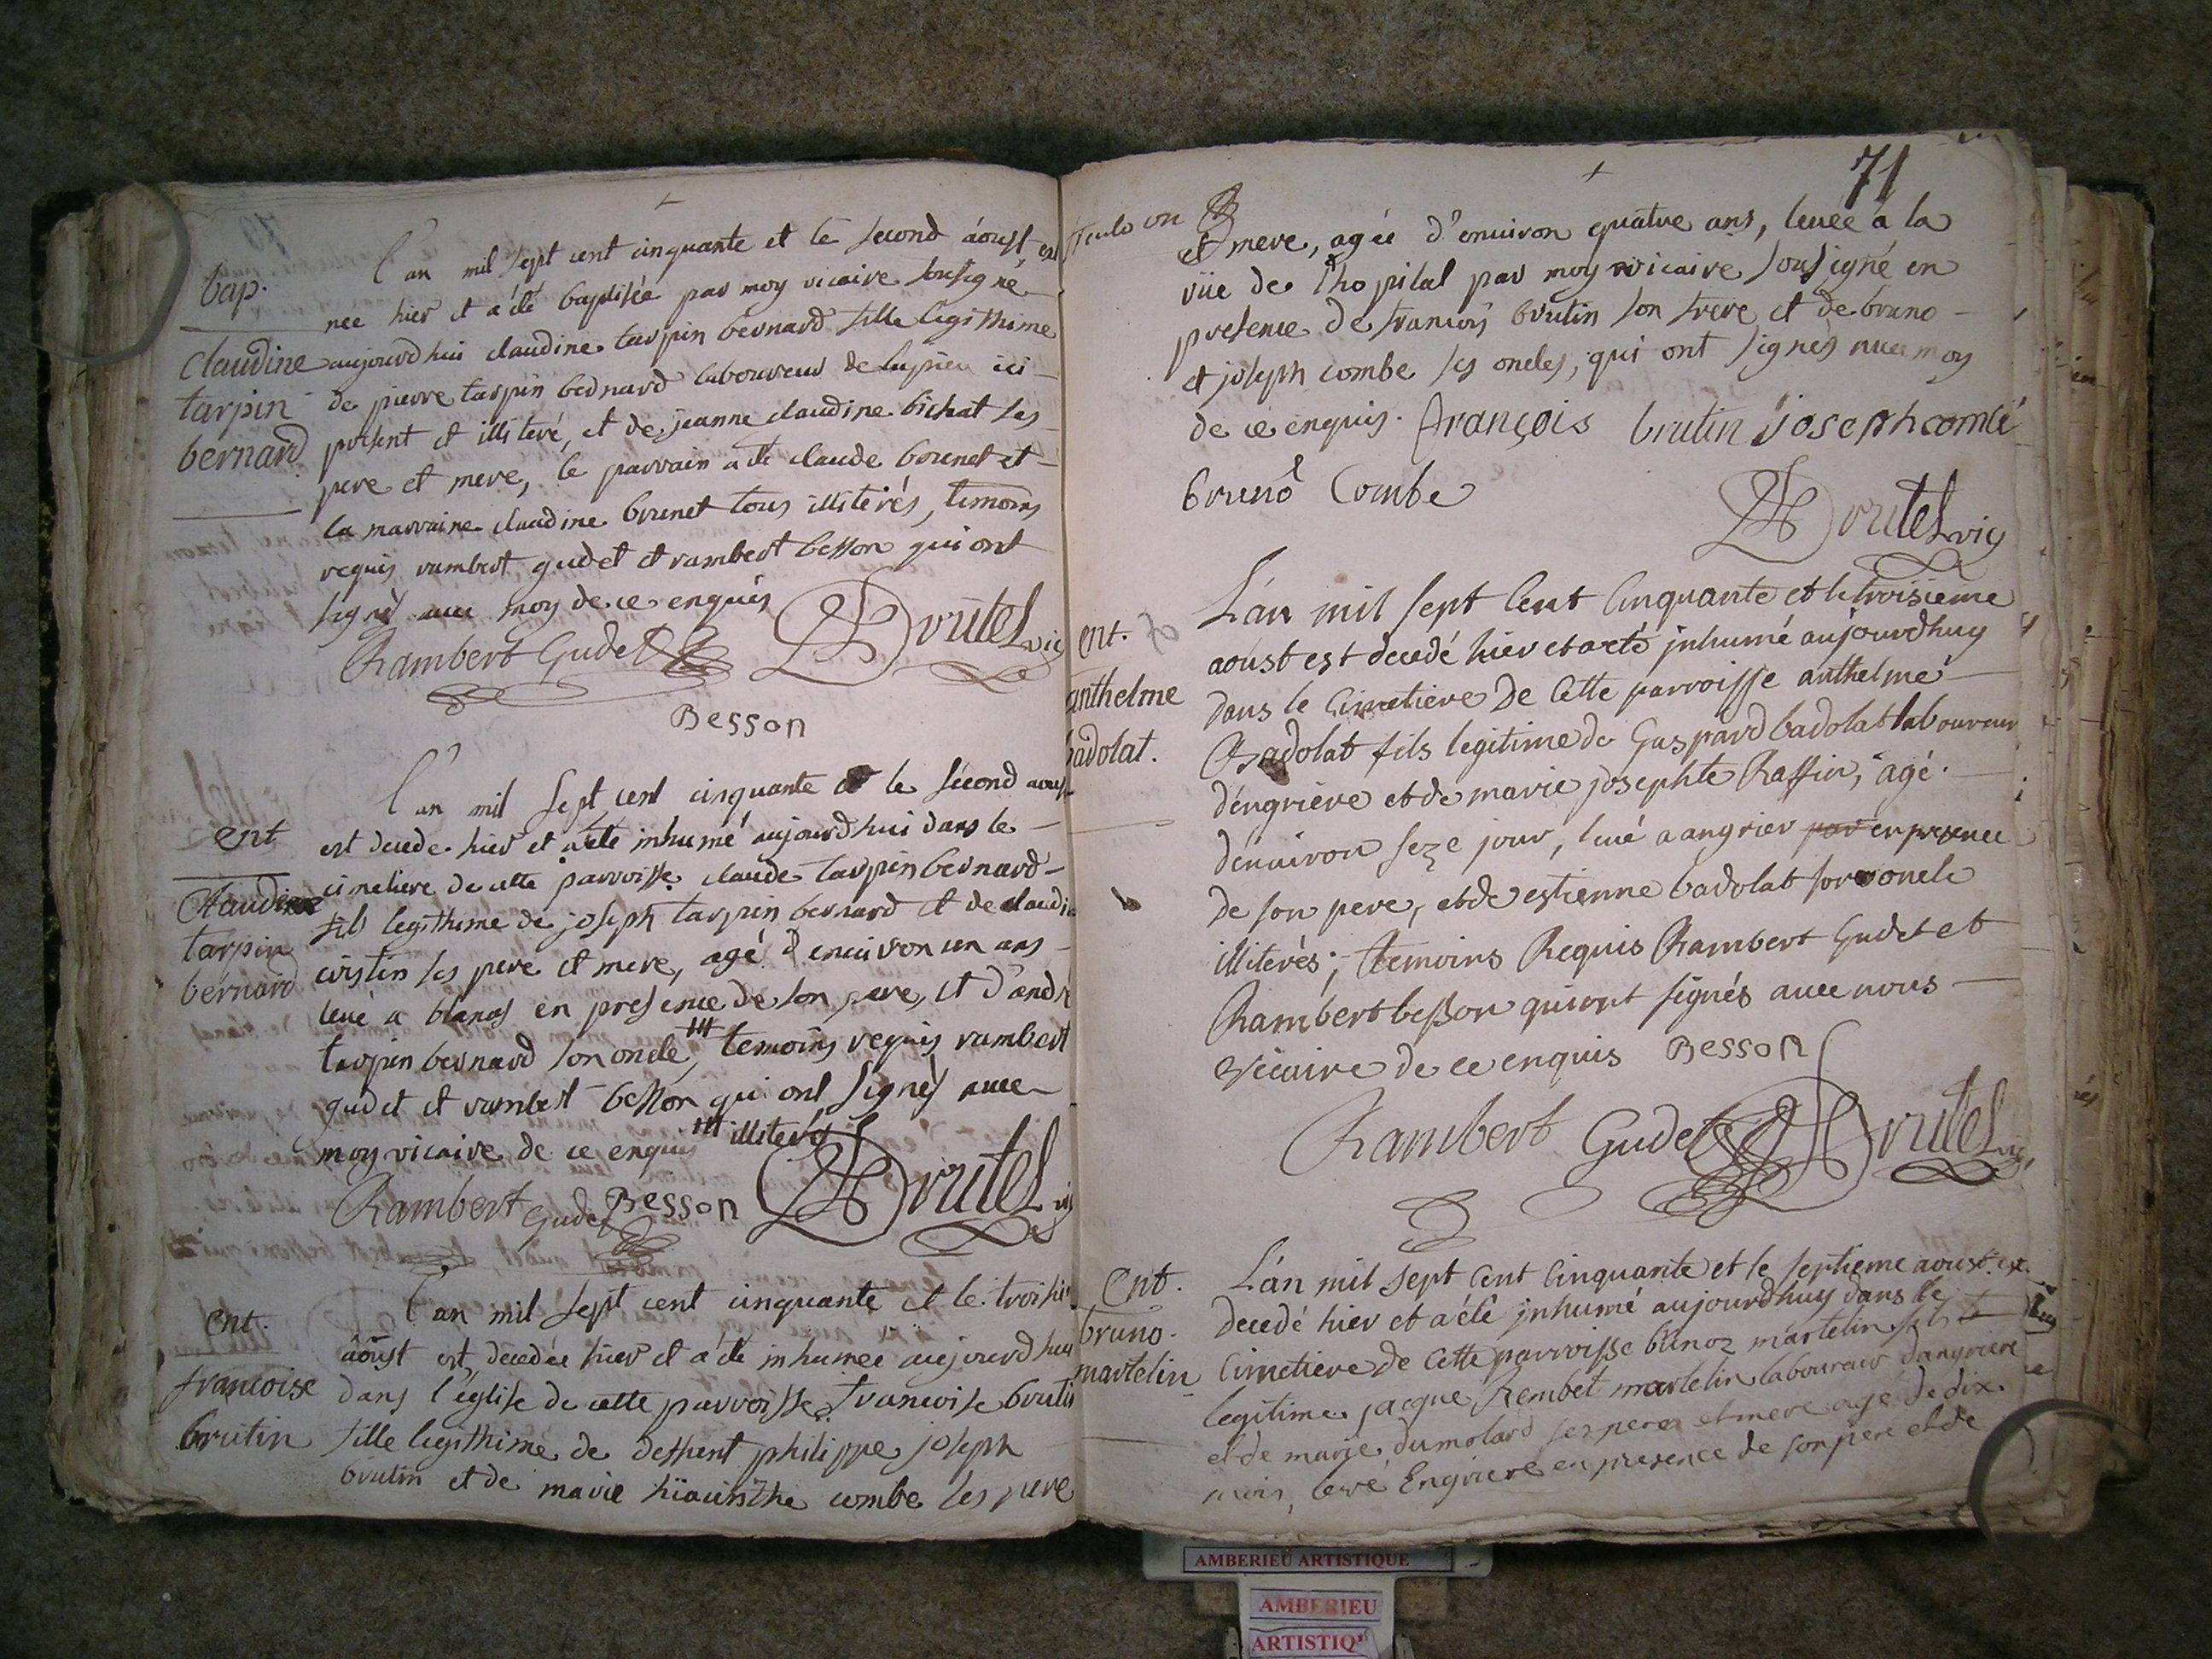 bap.
claudine
tarpin
bernard
l'an mil sept cent cinquante et le second aoust est
nee hier et a été baptisée par moy vicaire sousigné
aujourdhui claudine tarpin bernard fille legithime
de pierre tarpin bednard laboureur de lupieu ici
present et illiteré, et de jeanne claudine bichat ses
pere et mere, le parrain a ete claude bounet et
la marraine claudine brunet tous illiterés, temoins
requis rambert gudet et rambert besson qui ont
signés avec moy de ce enquis
Rambert Gudet Drutel vic
Besson
ent
Claudine
tarpin
bérnard
l'an mil sept cent cinquante et le sécond aoust
est decede hier et a ete inhumé aujourdhui dans le
cimetiere de cette parroisse claude tarpin bernard
fils legithime de joseph tarpin bernard et de claudine
cristin ses pere et mere, agé d'environ un ans
levé a blanas en presence de son pere, et d'andr
tarpin bernard son oncle, temoins requis rambert
gudet et rambert besson qui ont signés avec
moy vicaire de ce enquis illiterés
Rambert Gudet Besson Drutel vic
ent.
francoise
brutin
l'an mil sept cent cinquante et le troisie
aoust est decedée hier et a été inhumee aujourdhuy
dans l'église de cette parroisse francoise brutin
fille legithime de deffient philippe joseph
brutin et de marie hiacinthe combe ses pere
71
et mere, agée d'environ quatre ans, levée à la
rüe de l'hopital par moy vicaire sousigné en
presence de francois brutin son frere et de bruno
et joseph combe ses oncles, qui ont signés avec moy
de ce enquis. françois brutin joseph combe
brunô Combe
Drutel vic
ent.
anthelme
badolat.
L'án mil sept Cent Cinquante et le troisieme
aoust est decedé hier et a eté jnhumé aujourdhuy
dans le Cimetiere De Cette parroisse anthelme
Badolat fils legitime de Gaspard badolat laboureur
d'engriere et de marie josephte Raffin, agé
d'environ seze jour, levé a angrier par en presence
de son pere, et de estienne badolat son oncle
illiterés; temoins Requis Rambert Gudet et
Rambert besson qui ont signés avec nous
vicaire de ce enquis Besson
Rambert Gudet Drutel vic
Ent.
bruno
martelin
L'án mil sept Cent Cinquante et le septieme aoust est
decedé hier et a été jnhumé aujourdhuy dans le
Cimetiere de Cette parroisse bunoz martelin fils le
legitime jacque Rembet martelin laboureur dangriere
et de marie dumolard ses peres et mere agé de dix
mois, levé Engriere en presence de son pere et de
AMBERIEU ARTISTIQUE
AMBERIEU
ARTISTIQ